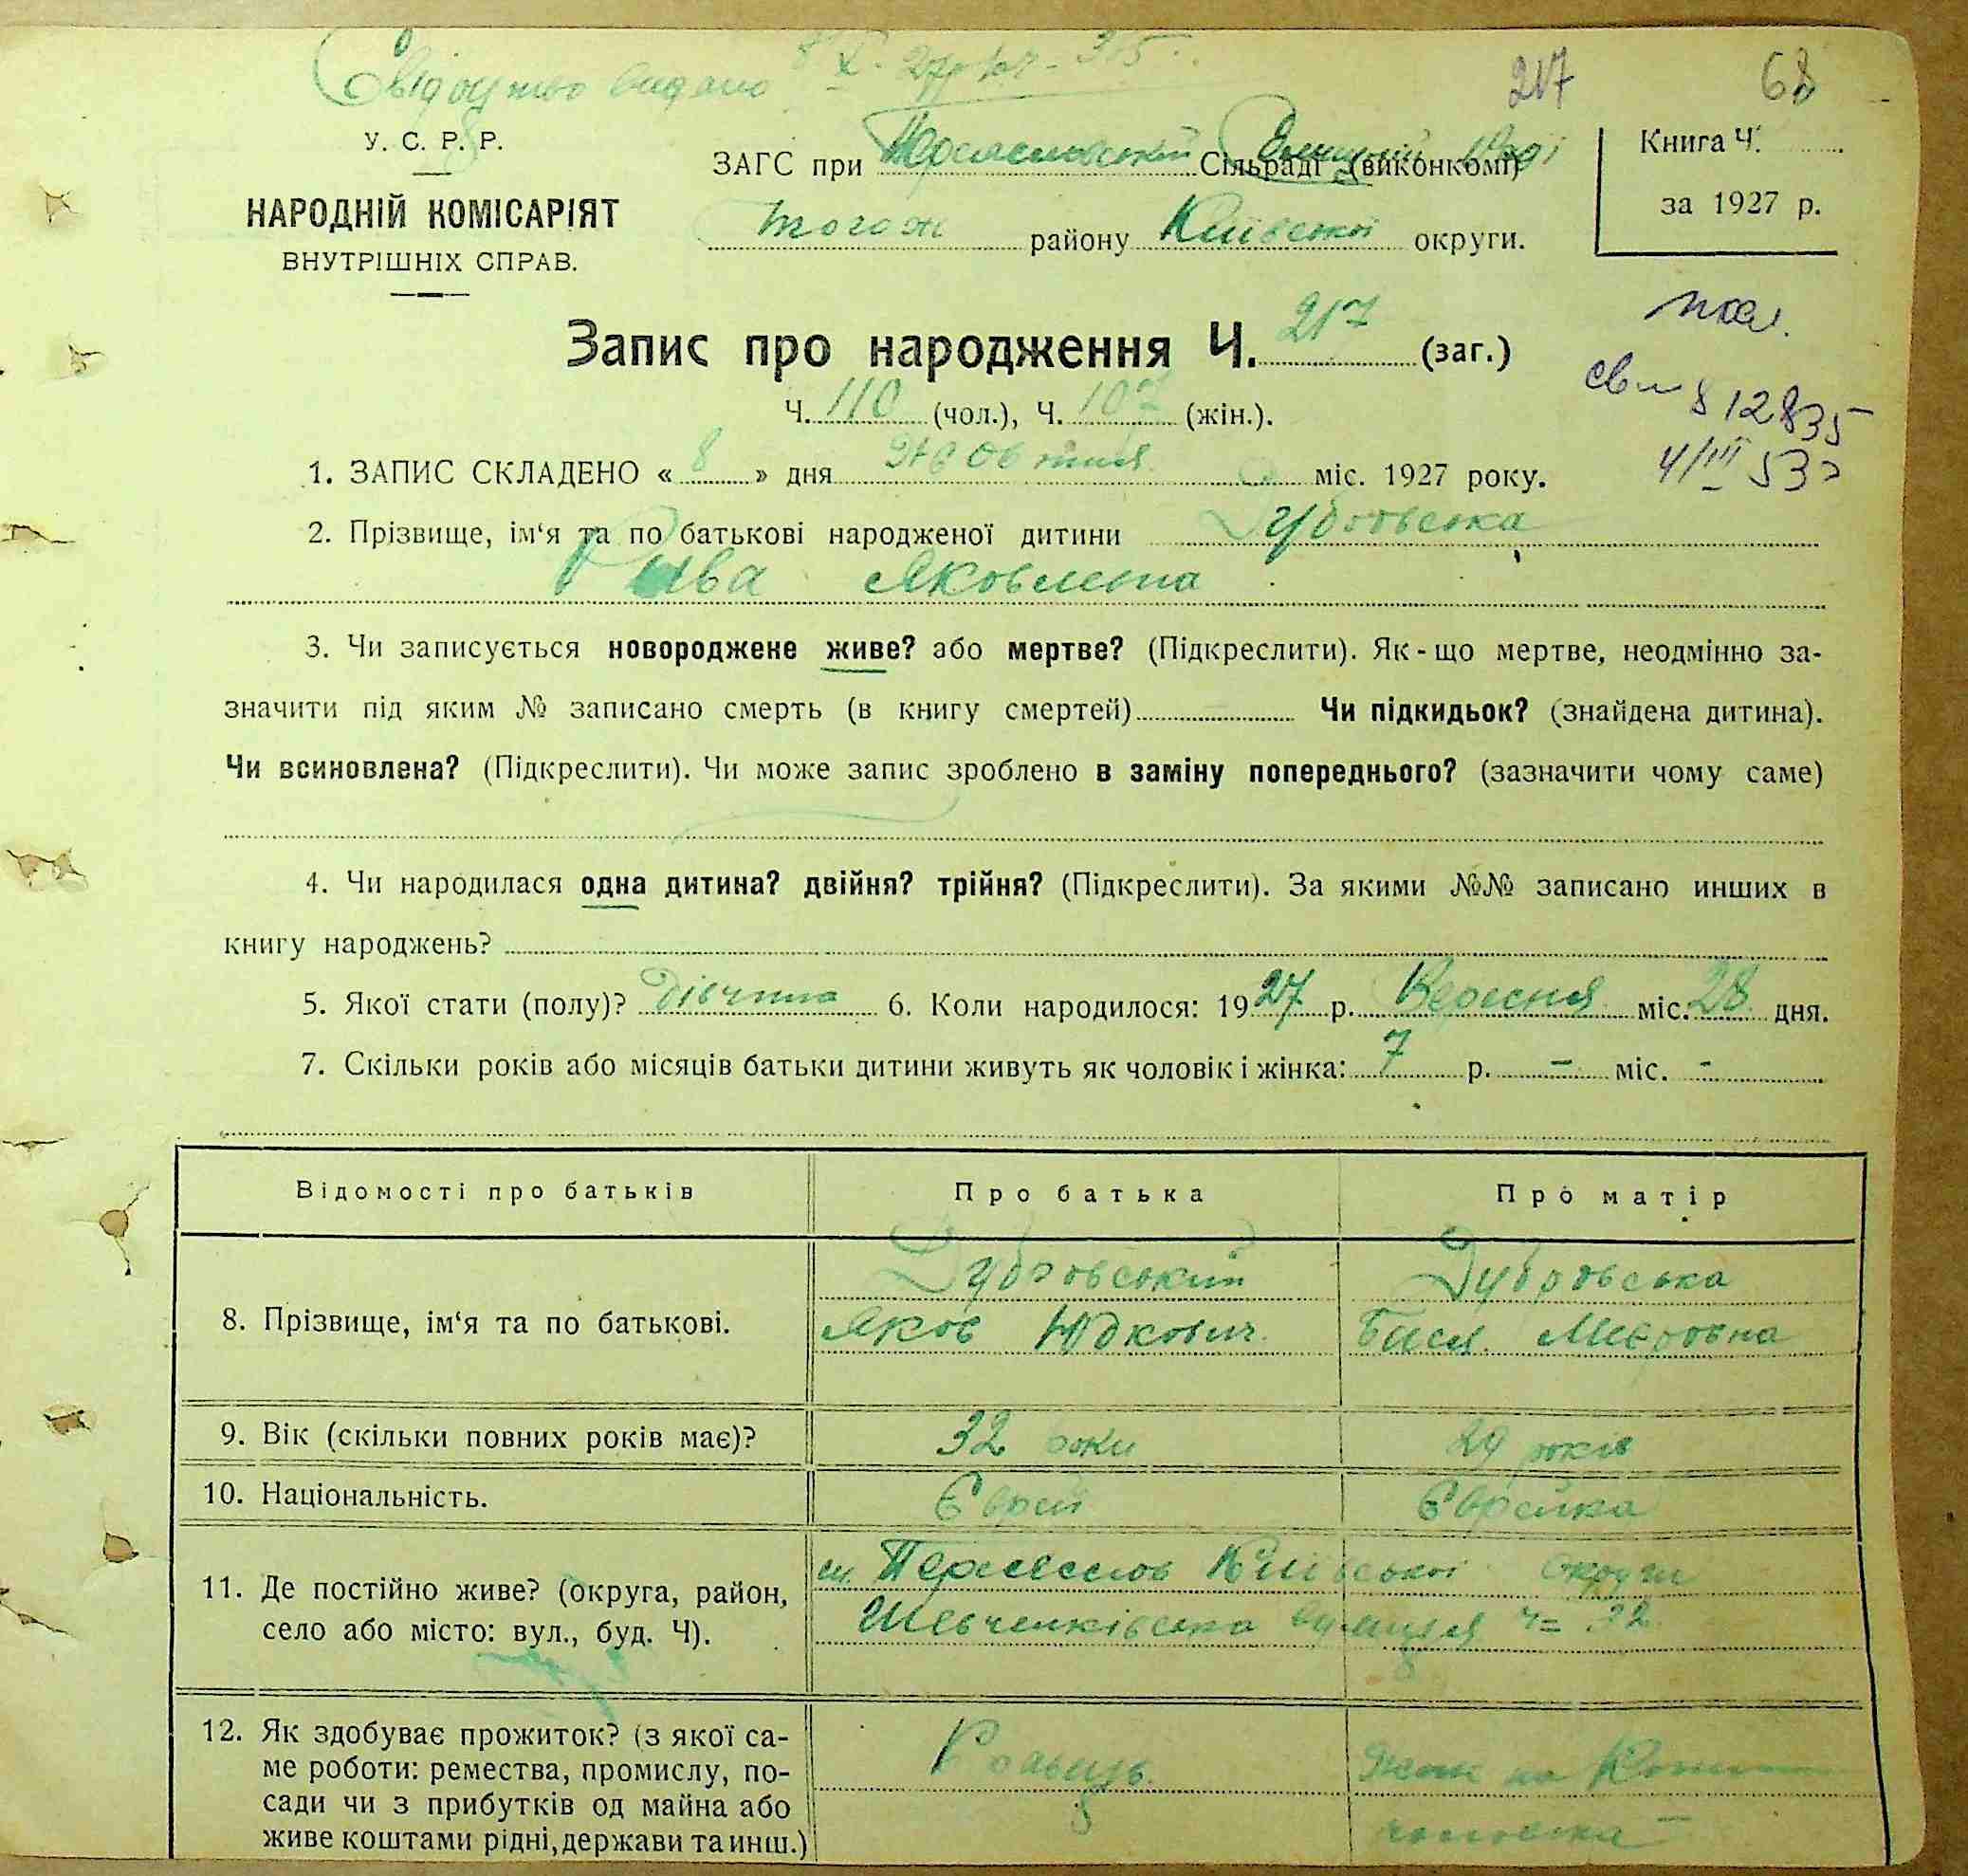 Свідоцтво видано 8/X-27 р Ч- 315.
217 68
У. С. Р. Р.
НАРОДНІЙ КОМІСАРІЯТ
ВНУТРІШНІХ СПРАВ.
ЗАГС при Сільраді (виконкомі)
того ж району Київської округи.
Книга Ч.
за 1927 р.
Запис про народження Ч. 217 (заг.)
Ч. 110 (чол.), Ч. 107 (жін.).
812835
4/III 53
1. ЗАПИС СКЛАДЕНО « 8 » дня Жовтня міс. 1927 року.
2. Прізвище, ім‘я та по батькові народженої дитини Дубровська
Рива Яковлевна
3. Чи записується новороджене живе? або мертве? (Підкреслити). Як-що мертве, неодмінно за-
значити під яким № записано смерть (в книгу смертей) Чи підкидьок? (знайдена дитина).
Чи всиновлена? (Підкреслити). Чи може запис зроблено в заміну попереднього? (зазначити чому саме)
4. Чи народилася одна дитина? двійня? трійня? (Підкреслити). За якими №№ записано инших в
книгу народжень?
5. Якої стати (полу)? Дівчина 6. Коли народилося: 1927 р. Вересня міс. 28 дня.
7. Скільки років або місяців батьки дитини живуть як чоловік і жінка: 7 р. - міс. -
Відомості про батьків Про батька Про матір
8. Прізвище, ім‘я та по батькові.
Дубровський
Яков Юдкович.
Дубровська
Бися Меєровна
9. Вік (скільки повних років має)? 32 роки 29 років
10. Національність. Єврей Єврейка
11. Де постійно живе? (округа, район,
село або місто: вул., буд. Ч).
м. Переяслов Київської округи
Шевченківська вулиця Ч= 32
12. Як здобуває прожиток? (з якої са-
ме роботи: ремества, промислу, по-
сади чи з прибутків од майна або
живе коштами рідні, держави та инш.)
Кравець.
чоловіка